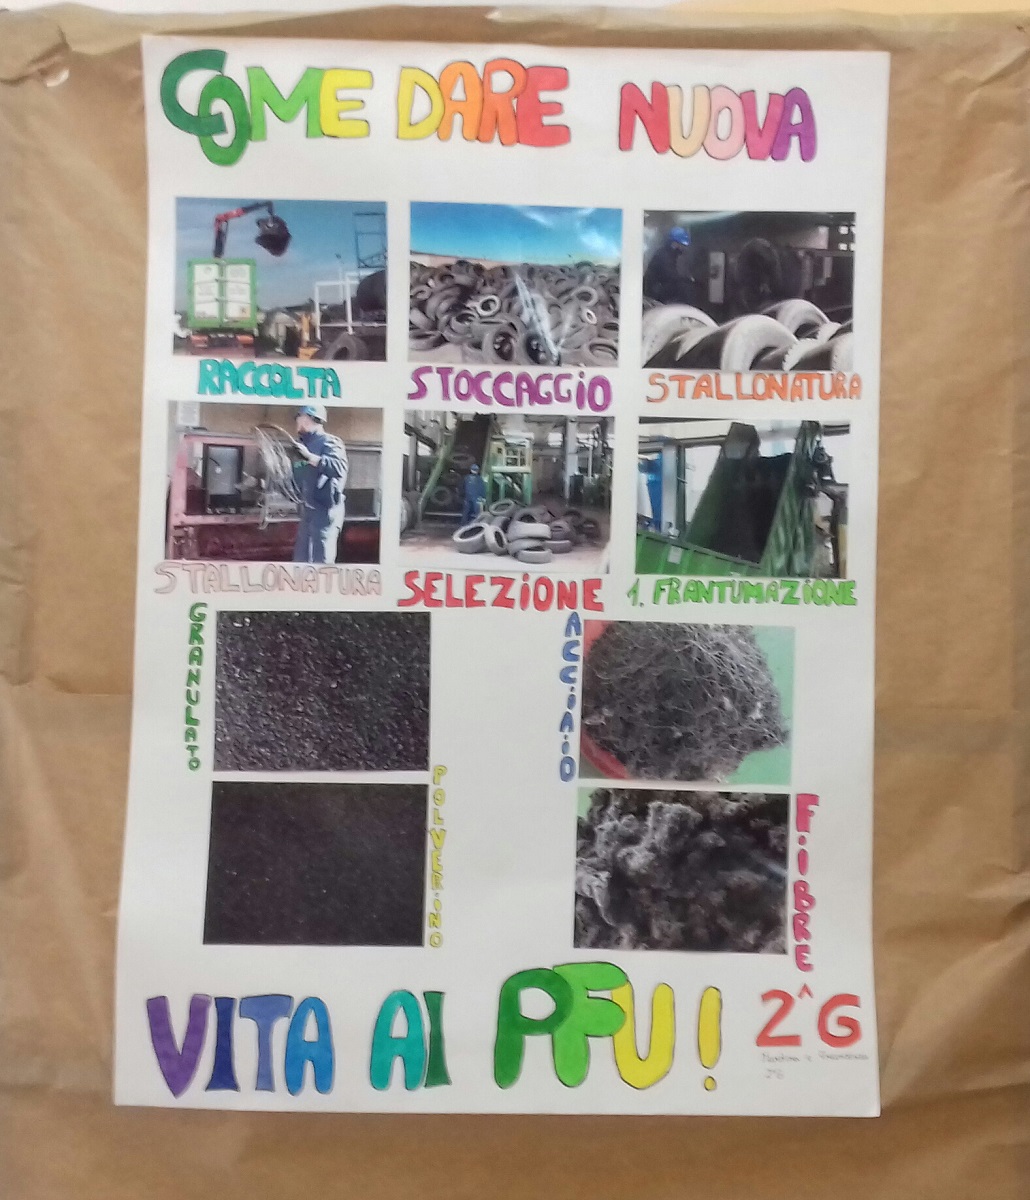 COME DARE NUOVA
RACCOLTA
STOCCAGGiO
STALLONATURA
STALLONATURA
SELEZiONE
1. FRANTUMAZiONE
GRANULATO
POLVERiNO
ACCiAiO
FiBRE
VITA AI PFU!
2^G